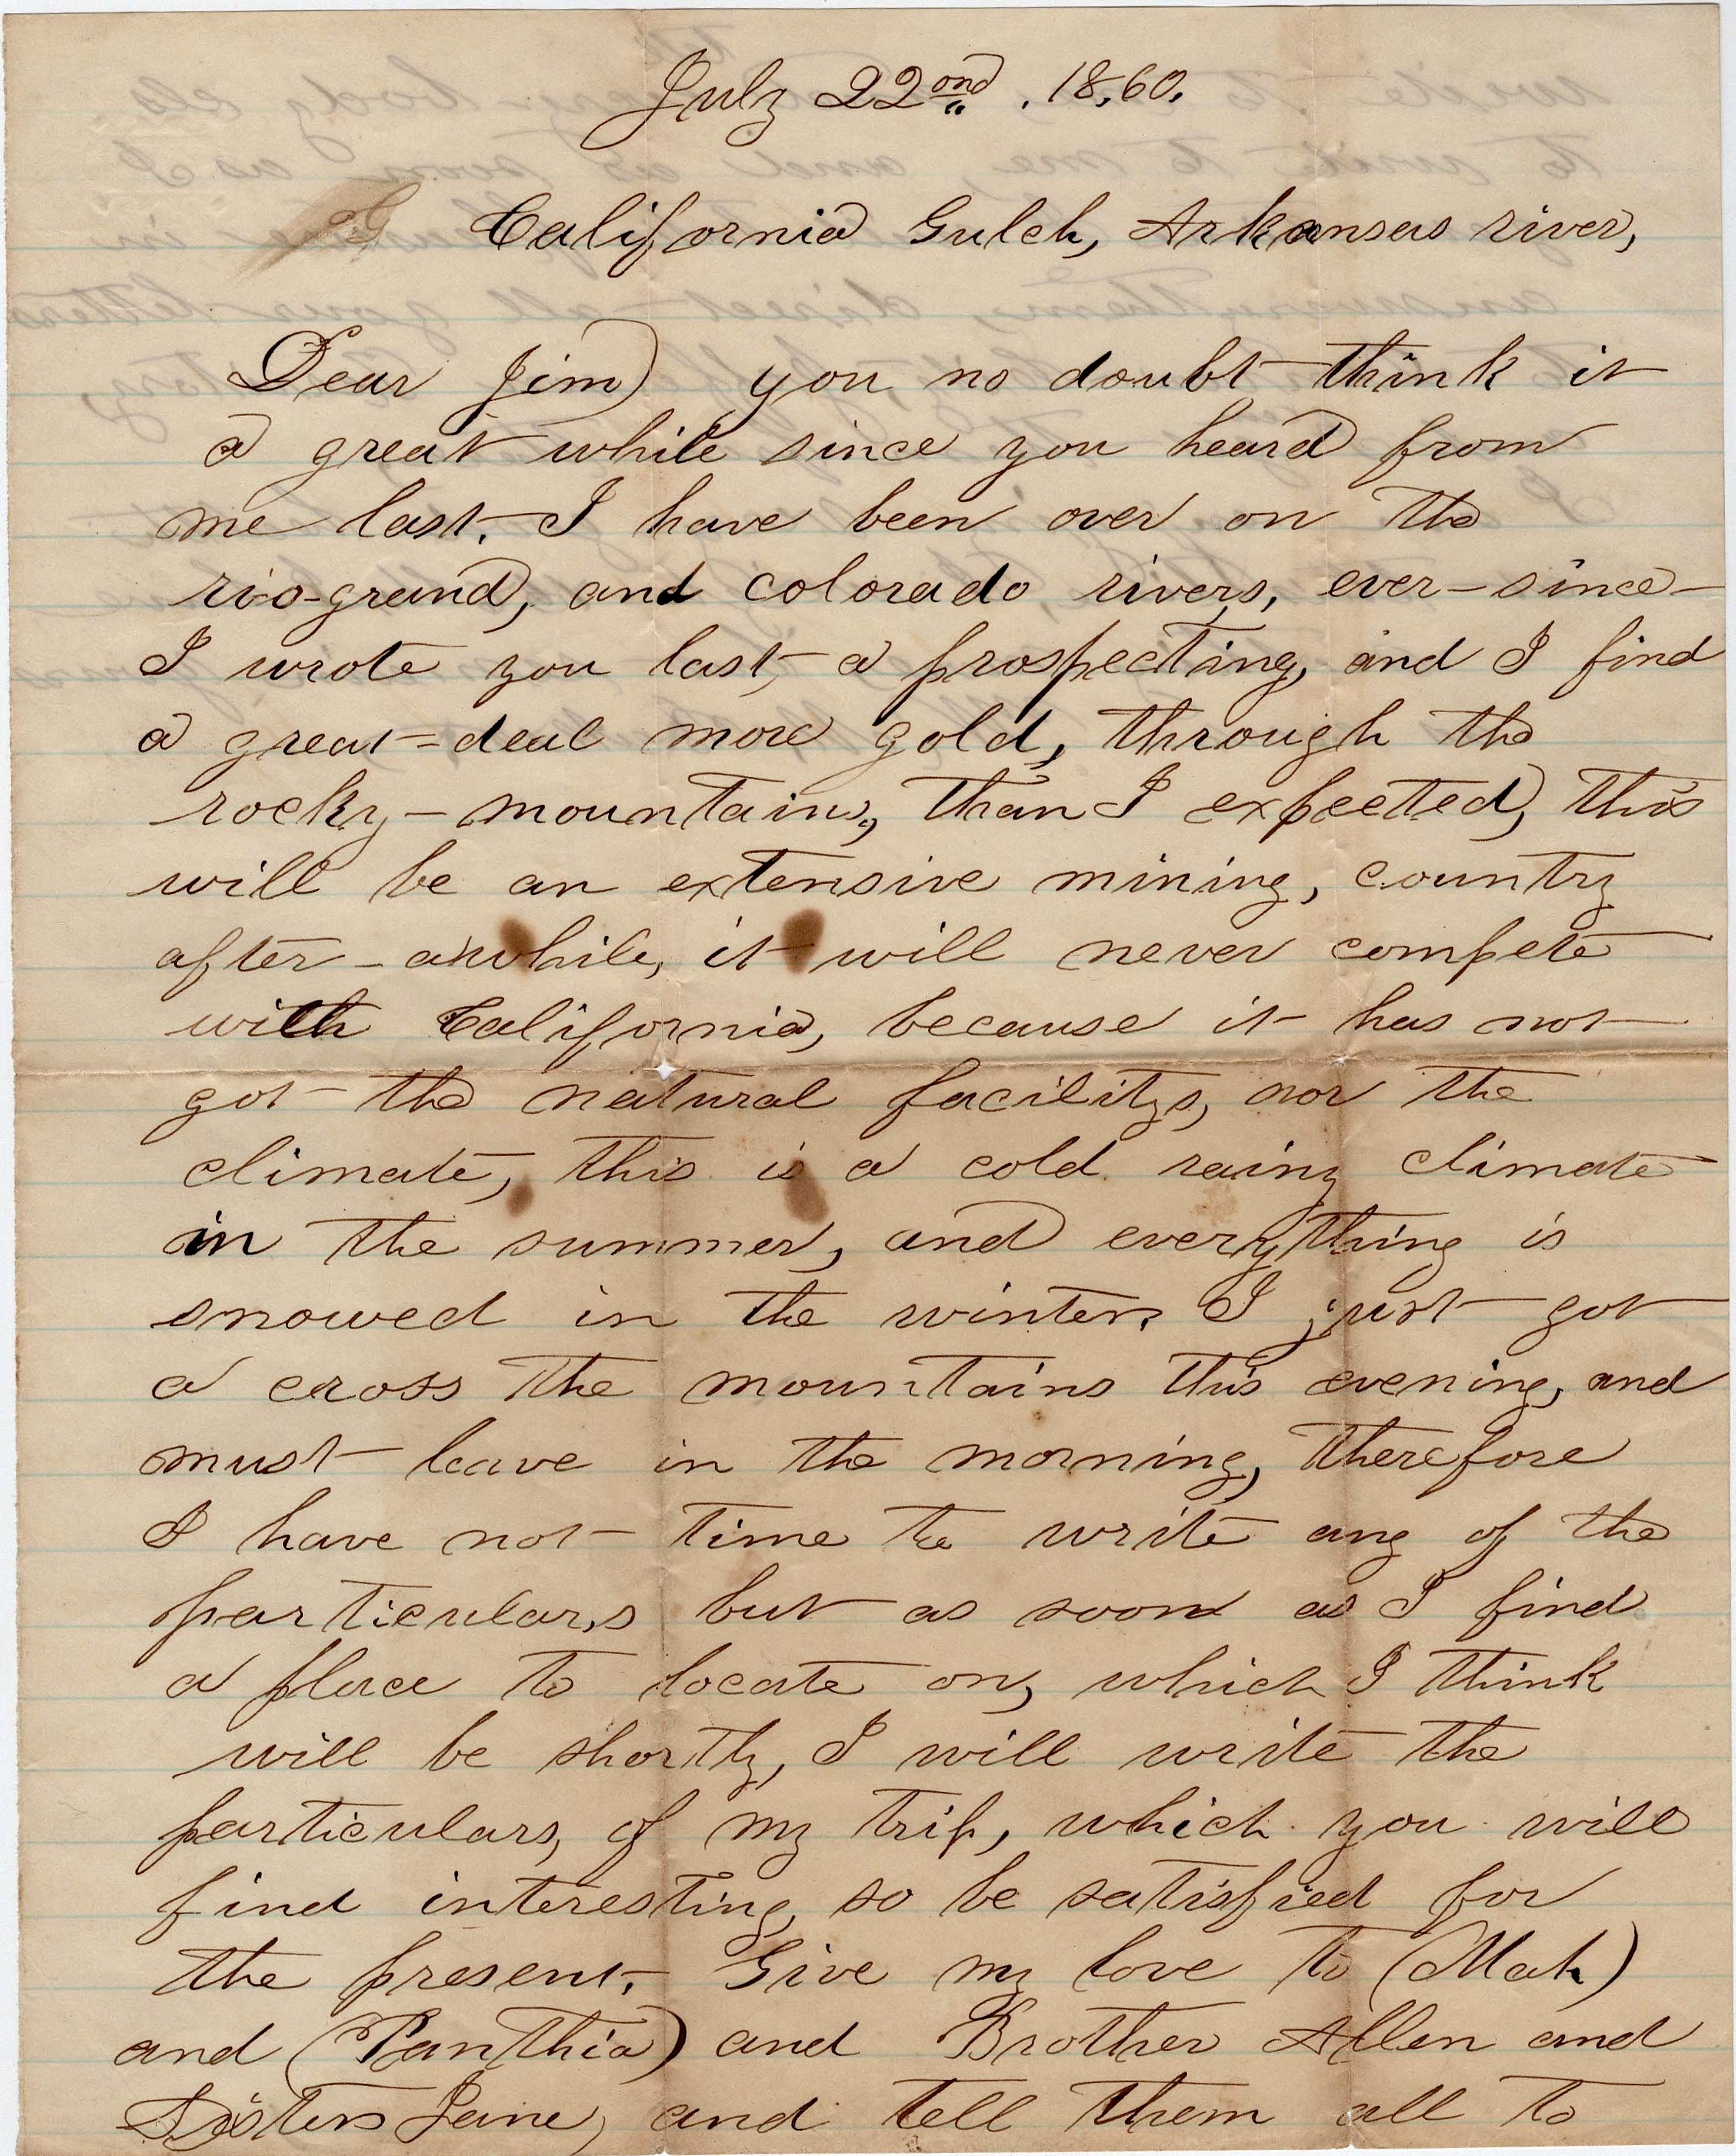 July 22ond. 18,60.
California Gulch, Arkansas river,
Dear Jim) you no doubt think it
a great while since you heard from
me last. I have been over on the
rio-grand, and colorado, rivers, ever-since
I wrote you last, a prospecting, and I find
a great-deal more gold, through the
rocky-mountains, than I expected, this
will be an extensive mining, country
after-awhile, it will never compete
with California, because it has not
got the natural facilitys, nor the
climate, this is a cold rainy climate
in the summer, and everything is
snowed in the winter. I just got
a cross the mountains this evening, and
must leave in the morning, therefore
I have not time to write any of the
particulars but as soon as I find
a place to locate on, which I think
will be shortly, I will write the
particulars, of my trip, which you will
find interesting, so be satisfied for
the present. Give my love to (Mah)
and (Panthia) and Brother Allen and
Sister Jane, and tell them all to